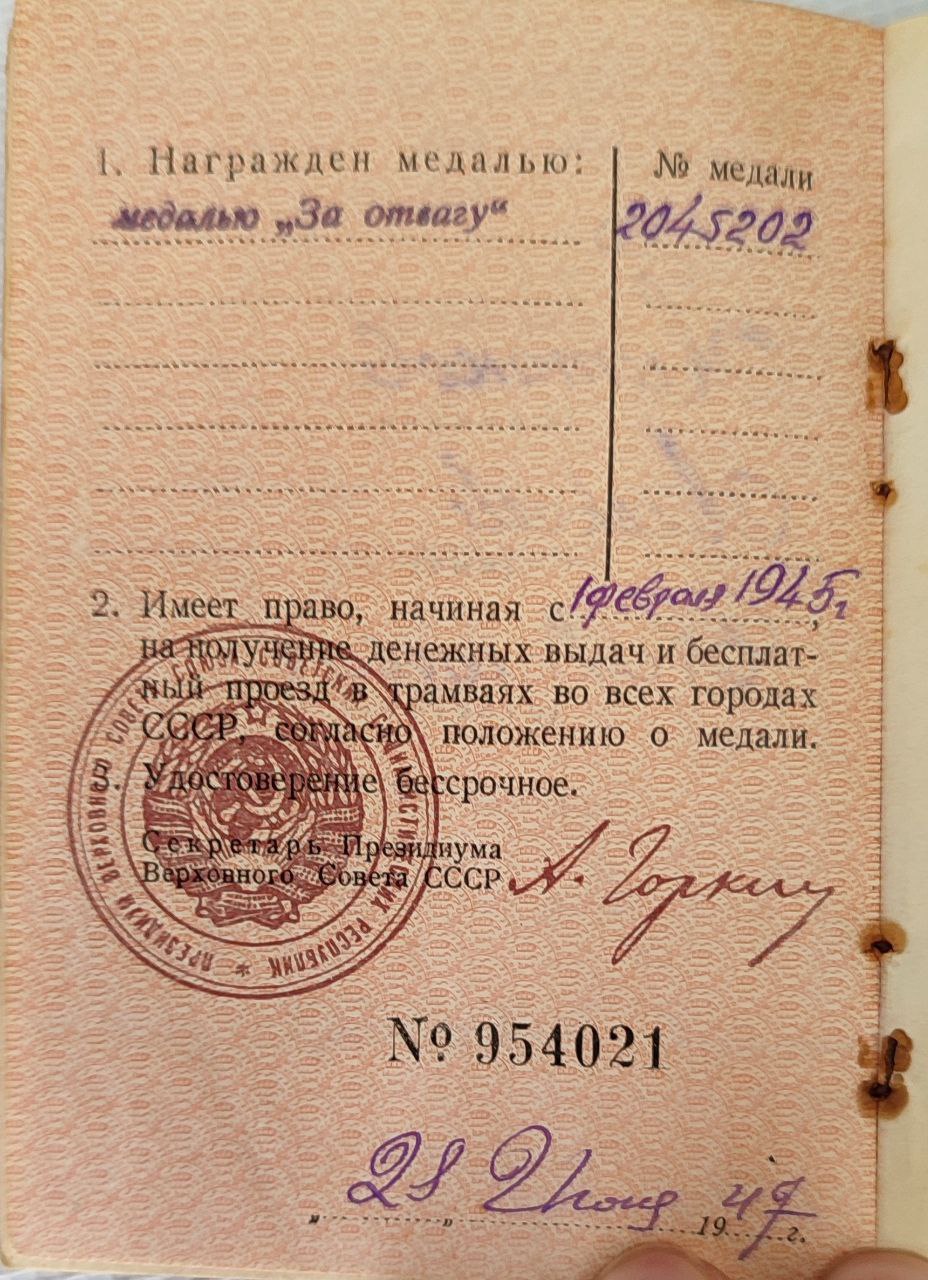 1. Награжден медалью: № медали
медалью „За отвагу“ 2045202
2. Имеет право, начиная с 1 февраля 1945 г,
на получение денежных выдач и бесплат-
ный проезд в трамваях во всех городах
СССР, согласно положению о медали.
3. Удостоверение бессрочное.
Секретарь Президиума
Верховного Совета СССР А. Горкин
ПРЕЗИДИУМ ВЕРХОВНОГО СОВЕТА СОЮЗА СОВЕТСКИХ СОЦИАЛИСТИЧЕСКИХ РЕСПУБЛИК *
№ 954021
„28“ Июня 1947 г.